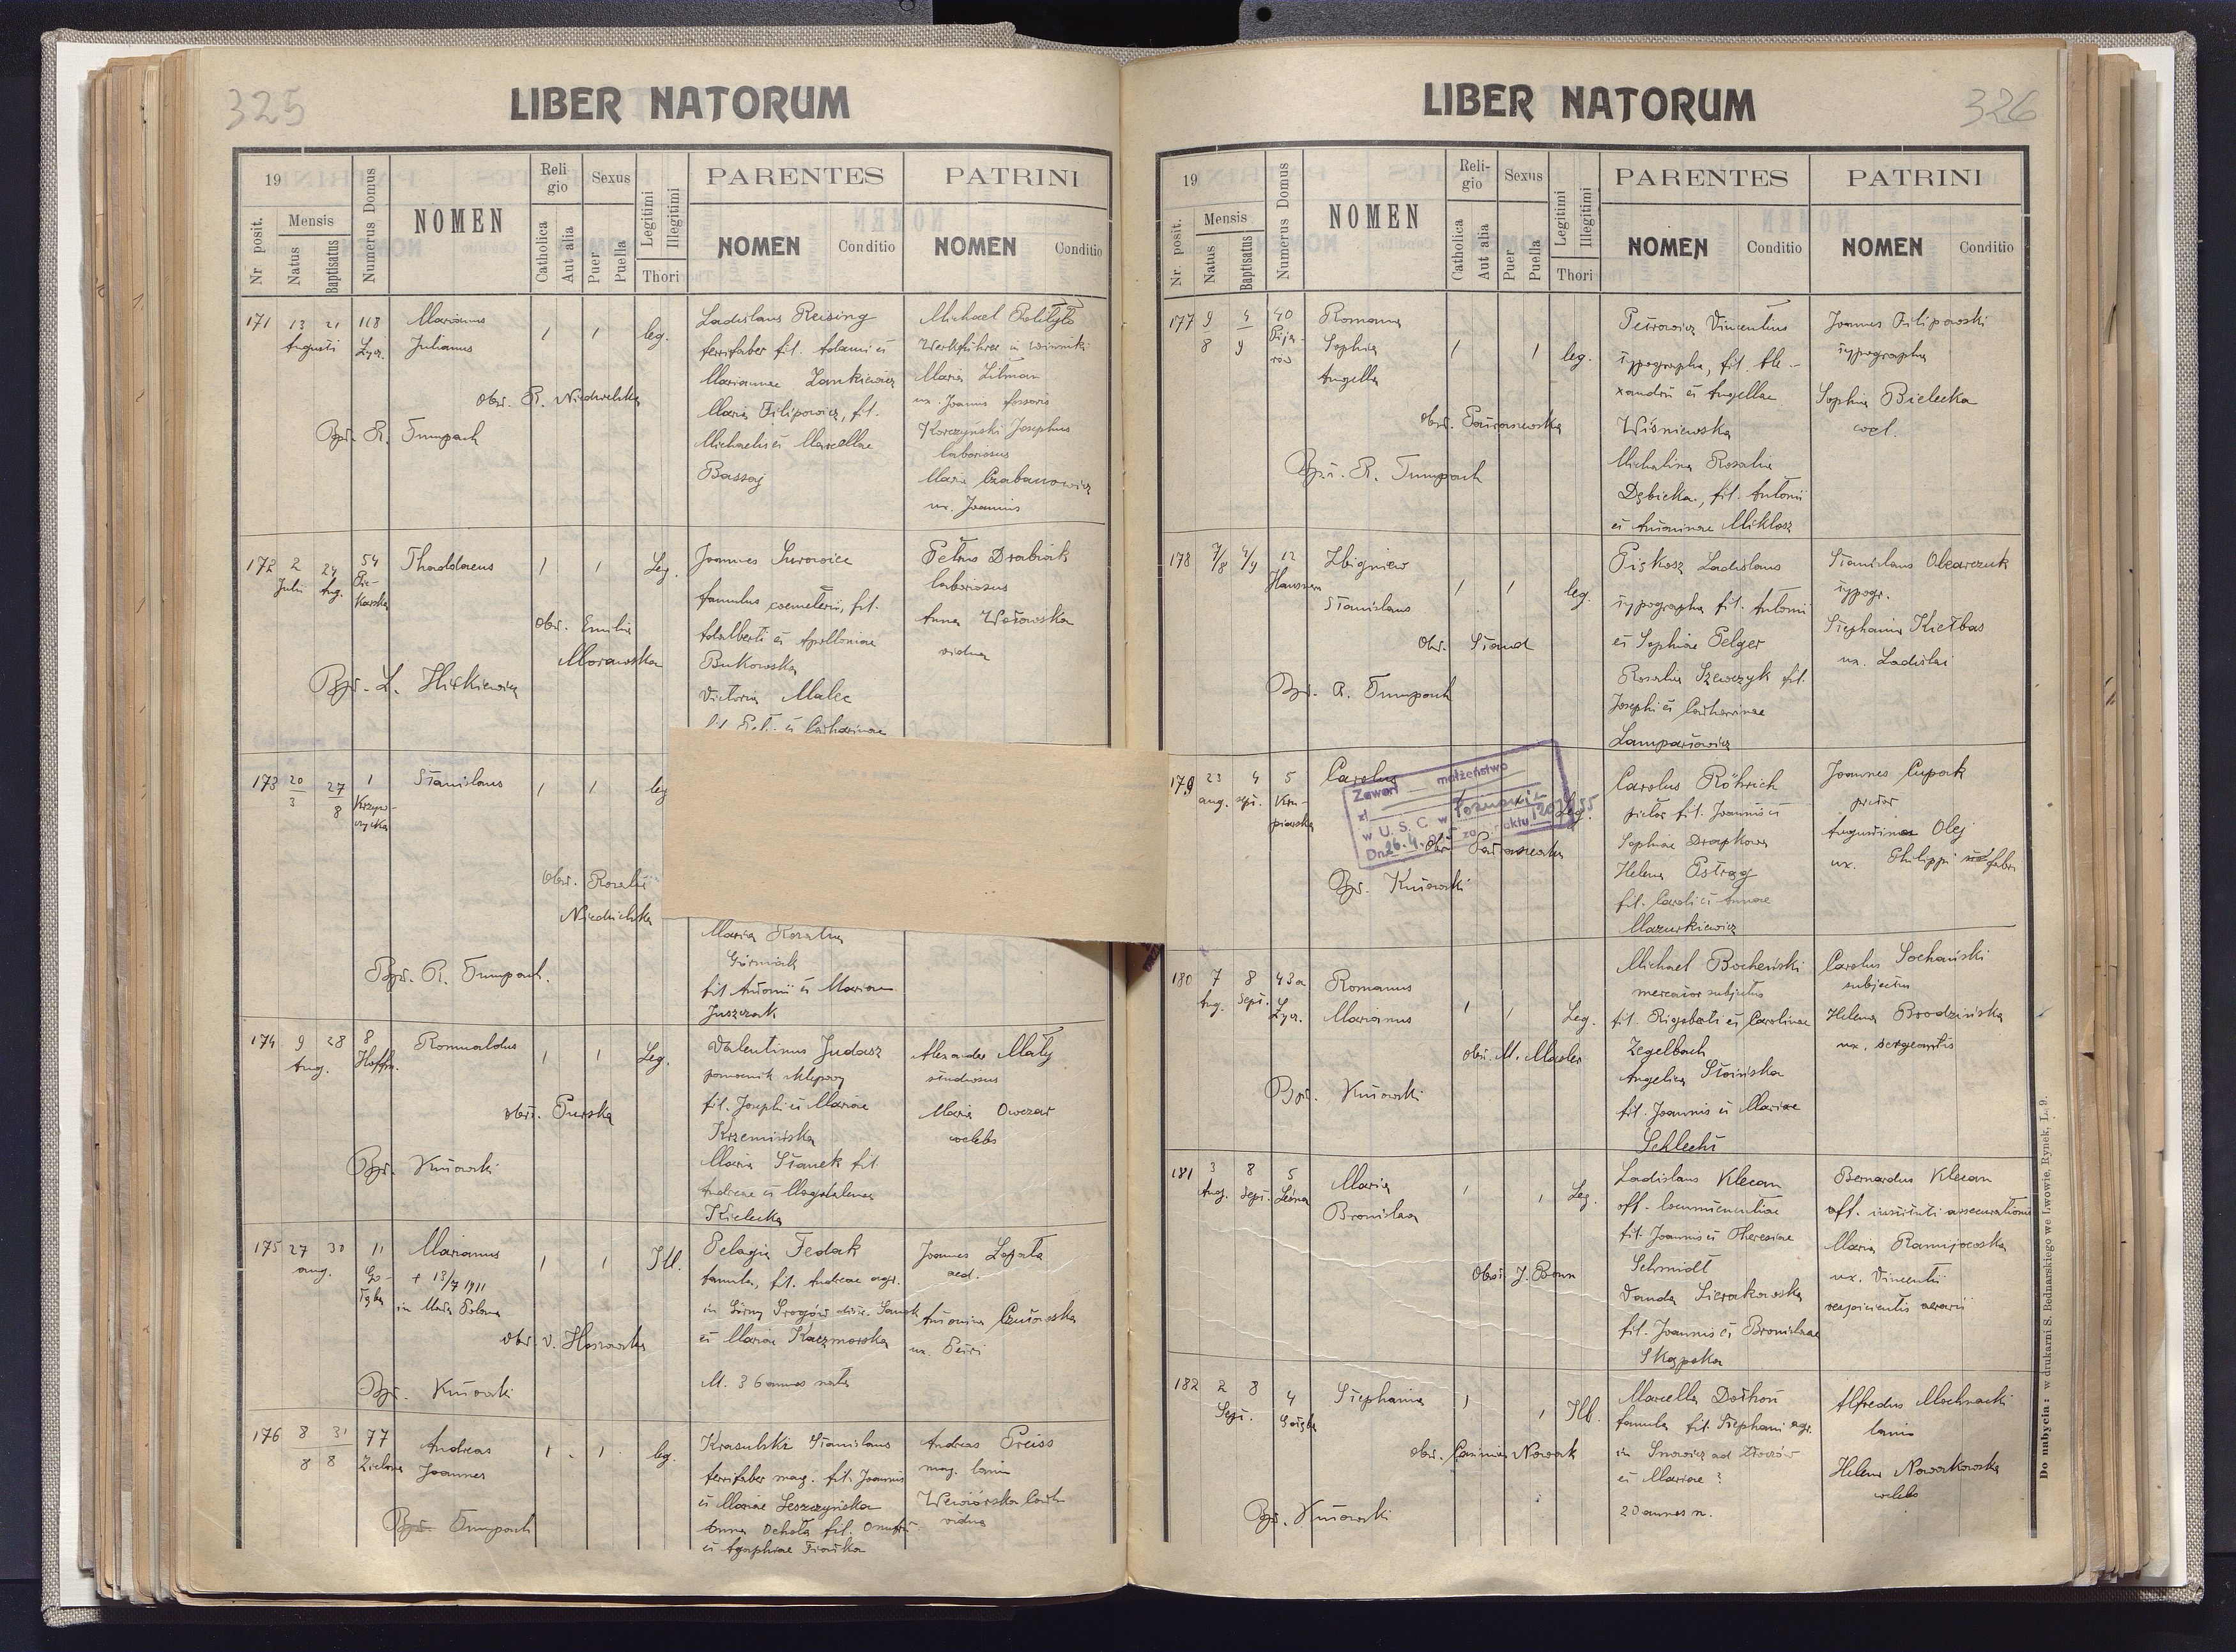 325
LIBER NATORUM
19
Nr. posit.
Mensis
Natus
Baptisatus
Numerus Domus
NOMEN
Religio
Catholica
Aut alia
Sexus
Puer
Puella
Legitimi
Illegitimi
Thori
PARENTES
NOMEN Conditio
PATRINI
NOMEN Conditio
171 13 21 Augusti 118 Lycz.
Marianus
Julianus
1 1 leg.
Obst. R. Niedzielska
Bpt. R. Tumpach
Ladislaus Reising
ferrifaber fil. Adami et
Mariannae Zankiewicz
Maria Filipowicz, fil.
Michaelis et Marcellae
Bassaj
Michael
Werkführer in Winniki
Maria Litman
ux. Joannis fossoris
Korczyński Josephus
laboriosus
Maria Czabanowicz
ux. Joannis
172 2 Julii 24 Aug. 54 Piekarska
Thaddaeus
1 1 Leg.
Obst. Emilia
Morawska
Bpt. L.
Joannes Surowiec
famulus coemeterii, fil.
Adalberti et Apolloniae
Bukowska
Victoria Malec
fil. Petri et Catharinae
Petrus Drabiak
laboriosus
Anna
vidua
173 20/3 27/8 1
Stanislaus
1 1 leg
Obst. Rosalia
Niedzielska
Bpt. R. Tumpach.
Maria Rosalia
Górniak
fil Antonii et Mariae
Juszczak
174 9 28 Aug. 8 Hoffm.
Romualdus
1 1 Leg.
Obst. Turska
Bpt. Kutowski
Valentinus Judasz
pomocnik sklepowy
fil. Josephi et Mariae
Krzemińska
Maria Stanek fil
Andreae et Magdalenae
Kielecka
Alexander Mały
studiosus
Maria Owczar
coelebs
175 27 30 aug. 11 Gołębia
Marianus
+ 13/7 1911
in
1 1 Ill.
Obst. V.
Bpt. Kutowski
Pelagia Fedak
famula, fil. Andreae agr.
in Górny Srogów distr. Sanok
et Mariae Kaczmarska
M. 36 annos nata
Joannes
aed.
Antonina
ux. Petri
176 8/8 31/8 77 Zielona
Andreas
Joannes
1 1 leg.
Bpt. Tumpach
Krasulski Stanislaus
ferrifaber mag. fil. Joannis
et Mariae Leszczyńska
Anna Ochota fil. Onufrii
et Agaphiae
Andreas Preiss
mag. lanio
Wewiórska Cath
vidua
326
LIBER NATORUM
19
Nr. posit.
Mensis
Natus
Baptisatus
Numerus Domus
NOMEN
Religio
Catholica
Aut alia
Sexus
Puer
Puella
Legitimi
Illegitimi
Thori
PARENTES
NOMEN Conditio
PATRINI
NOMEN Conditio
177 9/8 4/9 40 Pijarów
Romana
Sophia
Angella
1 1 leg.
Bpt. R. Tumpach
Petrowicz Vincentius
typographa, fil. Alexandri et Angellae
Wiśniewska
Michalina Rosalia
Dębicka, fil. Antonii
et Antoninae Miklosz
Joannes Filipowski
typographa
Sophia Bielecka
coel.
178 7/8 4/9 12 Hausnera
Zbigniew
Stanislaus
1 1 leg.
Obst. Stand
Bpt. R. Tumpach
Piskosz Ladislaus
typographa fil. Antonii
et Sophiae Pelger
Rosalia Szewczyk fil.
Josephi et Catharinae
Lampartowicz
Stanislaus Olearczuk
typogr.
Stephania Kiełbas
ux. Ladislai
179 23 aug. 4 sept. 5 Krupiarska
Carolus
Leg.
Zawarł małżeństwo
w U. S. C. w Poznaniu
Bpt. Kutowski
Carolus Röhrich
pictor fil. Joannis et
Sophiae Drapkowa
Helena Pstrąg
fil. Caroli et Annae
Mazurkiewicz
Joannes Cupak
pictor
Augustina Olej
ux. Philippi fabri
180 7 Aug. 8 Sept. 43a Lycz.
Romanus
Marianus
1 1 Leg.
Obst. M. Masler
Bpt. Kutowski
Michael Bocheński
mercator subjectus
fil. Rigoberti et Carolinae
Zegelbach
Angelica Stoińska
fil. Joannis et Mariae
Schlecht
Carolus Sochański
subjectus
Helena Brodzińska
ux. sergeantis
181 3 Aug. 8 Sept. 5 Leśna
Maria
Bronislaa
1 1 Leg.
Obst J. Bonn
Ladislaus Klecan
off. locumtenentiae
fil. Joannis et Theresiae
Schmidt
Vanda Sierakowska
fil. Joannis et Bronislaae
Skąpska
Bernardus Klecan
off. instituti assecurationis
Maria
ux. Vincentii
182 2 8 Sept. 4 Gołębia
Stephania
1 1 Ill.
Obst. Casimira Nowak
Bpt. Kutowski
Marcella Dothoń
famula fil. Stephani agr.
in Snowicz ad Złoczów
et Mariae ?
20 annos n.
Alfredus Mochnacki
lanio
Helena Nowakowska
coelebs
Do nabycia: w drukarni S. Bednarskiego we Lwowie, Rynek, L. 9.